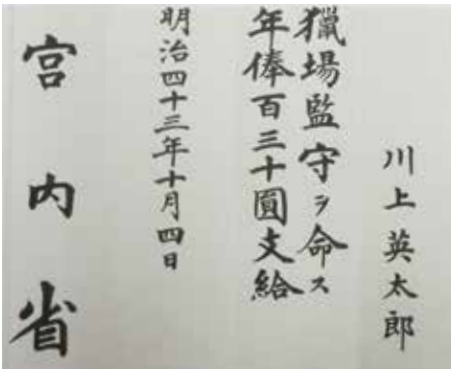 川上英太郎
獵場監守ヲ命ス
年俸百三十圓支給
明治四十三年十月四日
宮内省